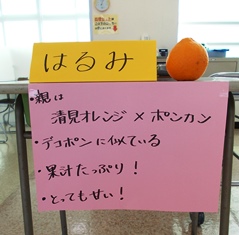 はるみ
・親は
清見オレンジ×ポンカン
・デコポンに似ている
・果汁たっぷり！
・とってもせい！